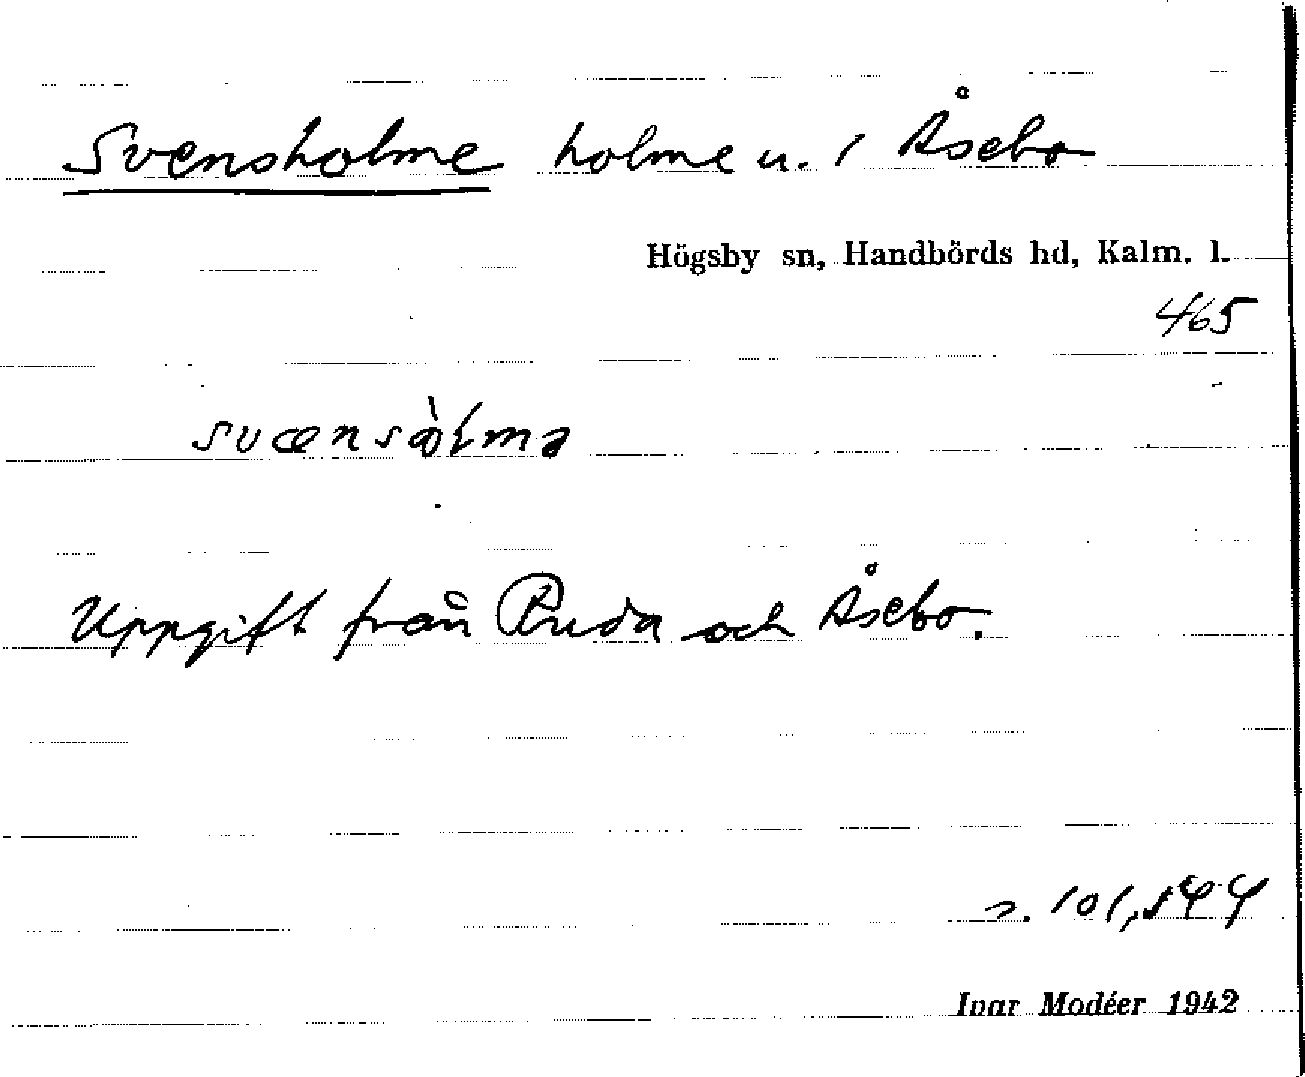 Svensholme holme u. / Åsebo
Högsby sn, Handbörds hd, Kalm. l.
465
svænsòlmə
Uppgift från Ruda och Åsebo.
s. 101,
Ivar Modéer 1942